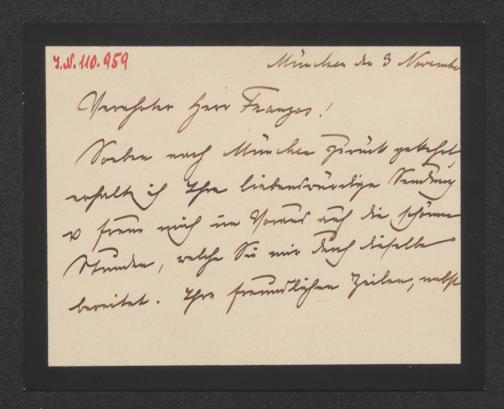 I.N. 110.959
München den 3 November
Verehrter Herr Franzos!
Soeben nach München zurück gekehrt
erhalte ich Ihre liebenswürdige Sendung
u freue mich im Voraus auf die schönen
Stunden, welche Sie mir durch dieselbe
bereitet. Ihre freundlichen Zeilen, nebst